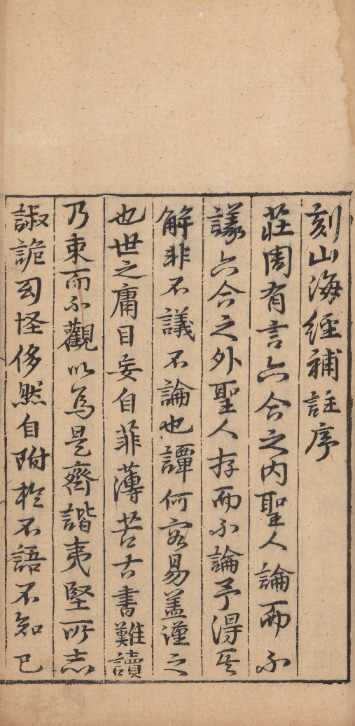 刻山海經補註序
莊周有言六合之内聖人論而不
議六合之外聖人存而不論予得其
解非不議不論也譚何容易盖謹之
也世之庸目妄自菲薄苦古書難讀
乃束而不觀以爲是齊諧夷堅所志
諔詭幻怪侈然自附於不語不知已